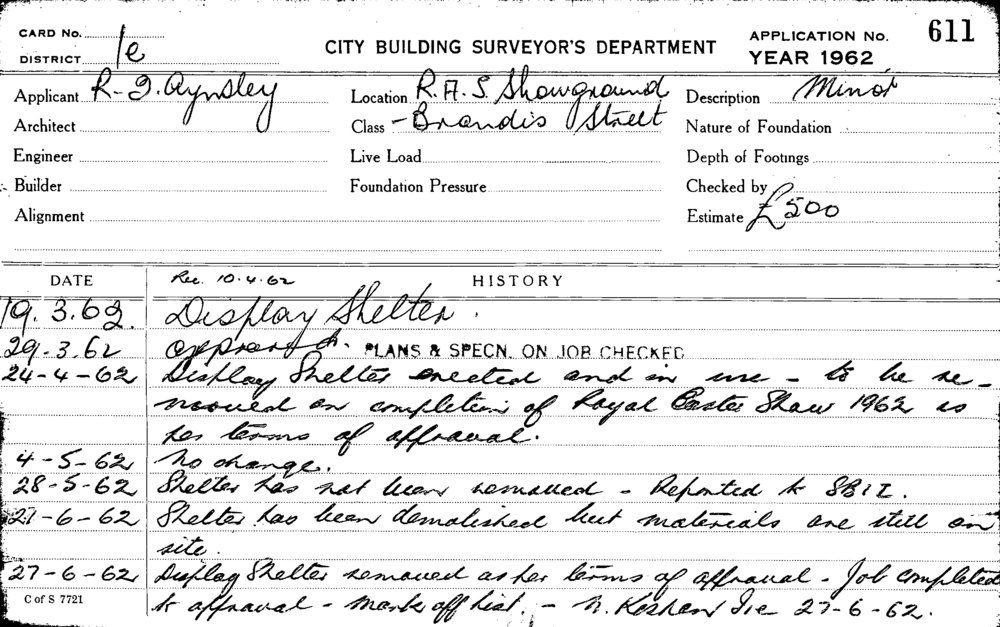 CARD No.
DISTRICT 1e
CITY BUILDING SURVEYOR'S DEPARTMENT
APPLICATION No. 611
YEAR 1962
Applicant R. J. Aynsley
Location R.A.S. Showground
Description Minor
Architect
Class - Brandis Street
Nature of Foundation
Engineer
Live Load
Depth of Footings
Builder
Foundation Pressure
Checked by
Alignment
Estimate £500
DATE
Rec. 10.4.62
HISTORY
19.3.62 Display Shelter.
29-3.62 approved. PLANS & SPECN. ON JOB CHECKED
24-4-62 Display Shelter erected and in use - to be re-
moved on completion of Royal Easter Show 1962 as
per terms of approval.
4-5-62 No change.
28-5-62 Shelter has not been removed - Reported to SBII.
21-6-62 Shelter has been demolished but materials are still on
site.
27-6-62 Display Shelter removed as per terms of approval - Job completed
C of S 7721 to approval - mark off list. - 27-6-62.